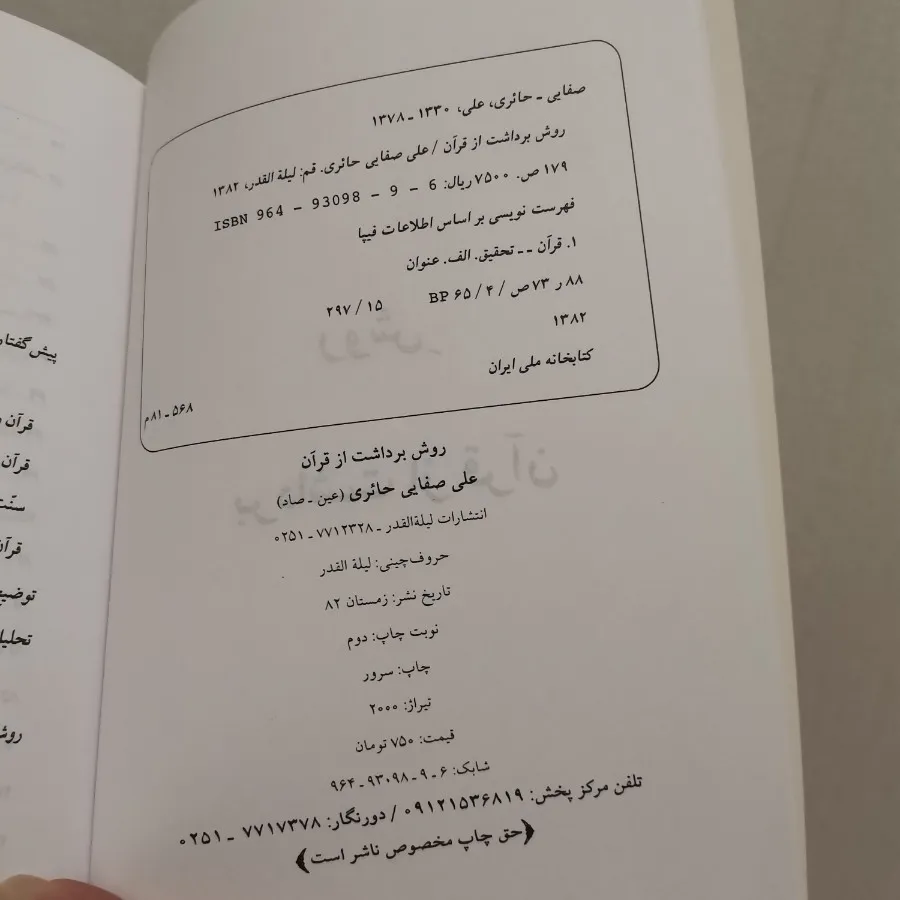 صفایی ـ حائری، علی، ۱۳۳۰ ـ ۱۳۷۸
روش برداشت از قرآن / علی صفایی حائری. قم: لیلة القدر، ۱۳۸۲
۱۷۹ ص. ۷۵۰۰ ریال: ISBN 964 - 93098 - 9 - 6
فهرست نویسی بر اساس اطلاعات فیپا
۱. قرآن ـ ـ تحقیق. الف. عنوان
۸۸ ر ۷۳ ص / ۴ / ۶۵ BP ۲۹۷ / ۱۵
۱۳۸۲
کتابخانه ملی ایران
۵۶۸ ـ ۸۱م
روش برداشت از قرآن
علی صفایی حائری (عین ـ صاد)
انتشارات لیلةالقدر ـ ۷۷۱۲۳۲۸ ـ ۰۲۵۱
حروف‌چینی: لیلة القدر
تاریخ نشر: زمستان ۸۲
نوبت چاپ: دوم
چاپ: سرور
تیراژ: ۲۰۰۰
قیمت: ۷۵۰ تومان
شابک: ۶ ـ ۹ ـ ۹۳۰۹۸ ـ ۹۶۴
تلفن مرکز پخش: ۰۹۱۲۱۵۳۶۸۱۹ / دورنگار: ۷۷۱۷۳۷۸ ـ ۰۲۵۱
(حق چاپ مخصوص ناشر است)
پیش گفتار
قرآن
قرآن
سنّت
قرآن
توضیح
تحلیل